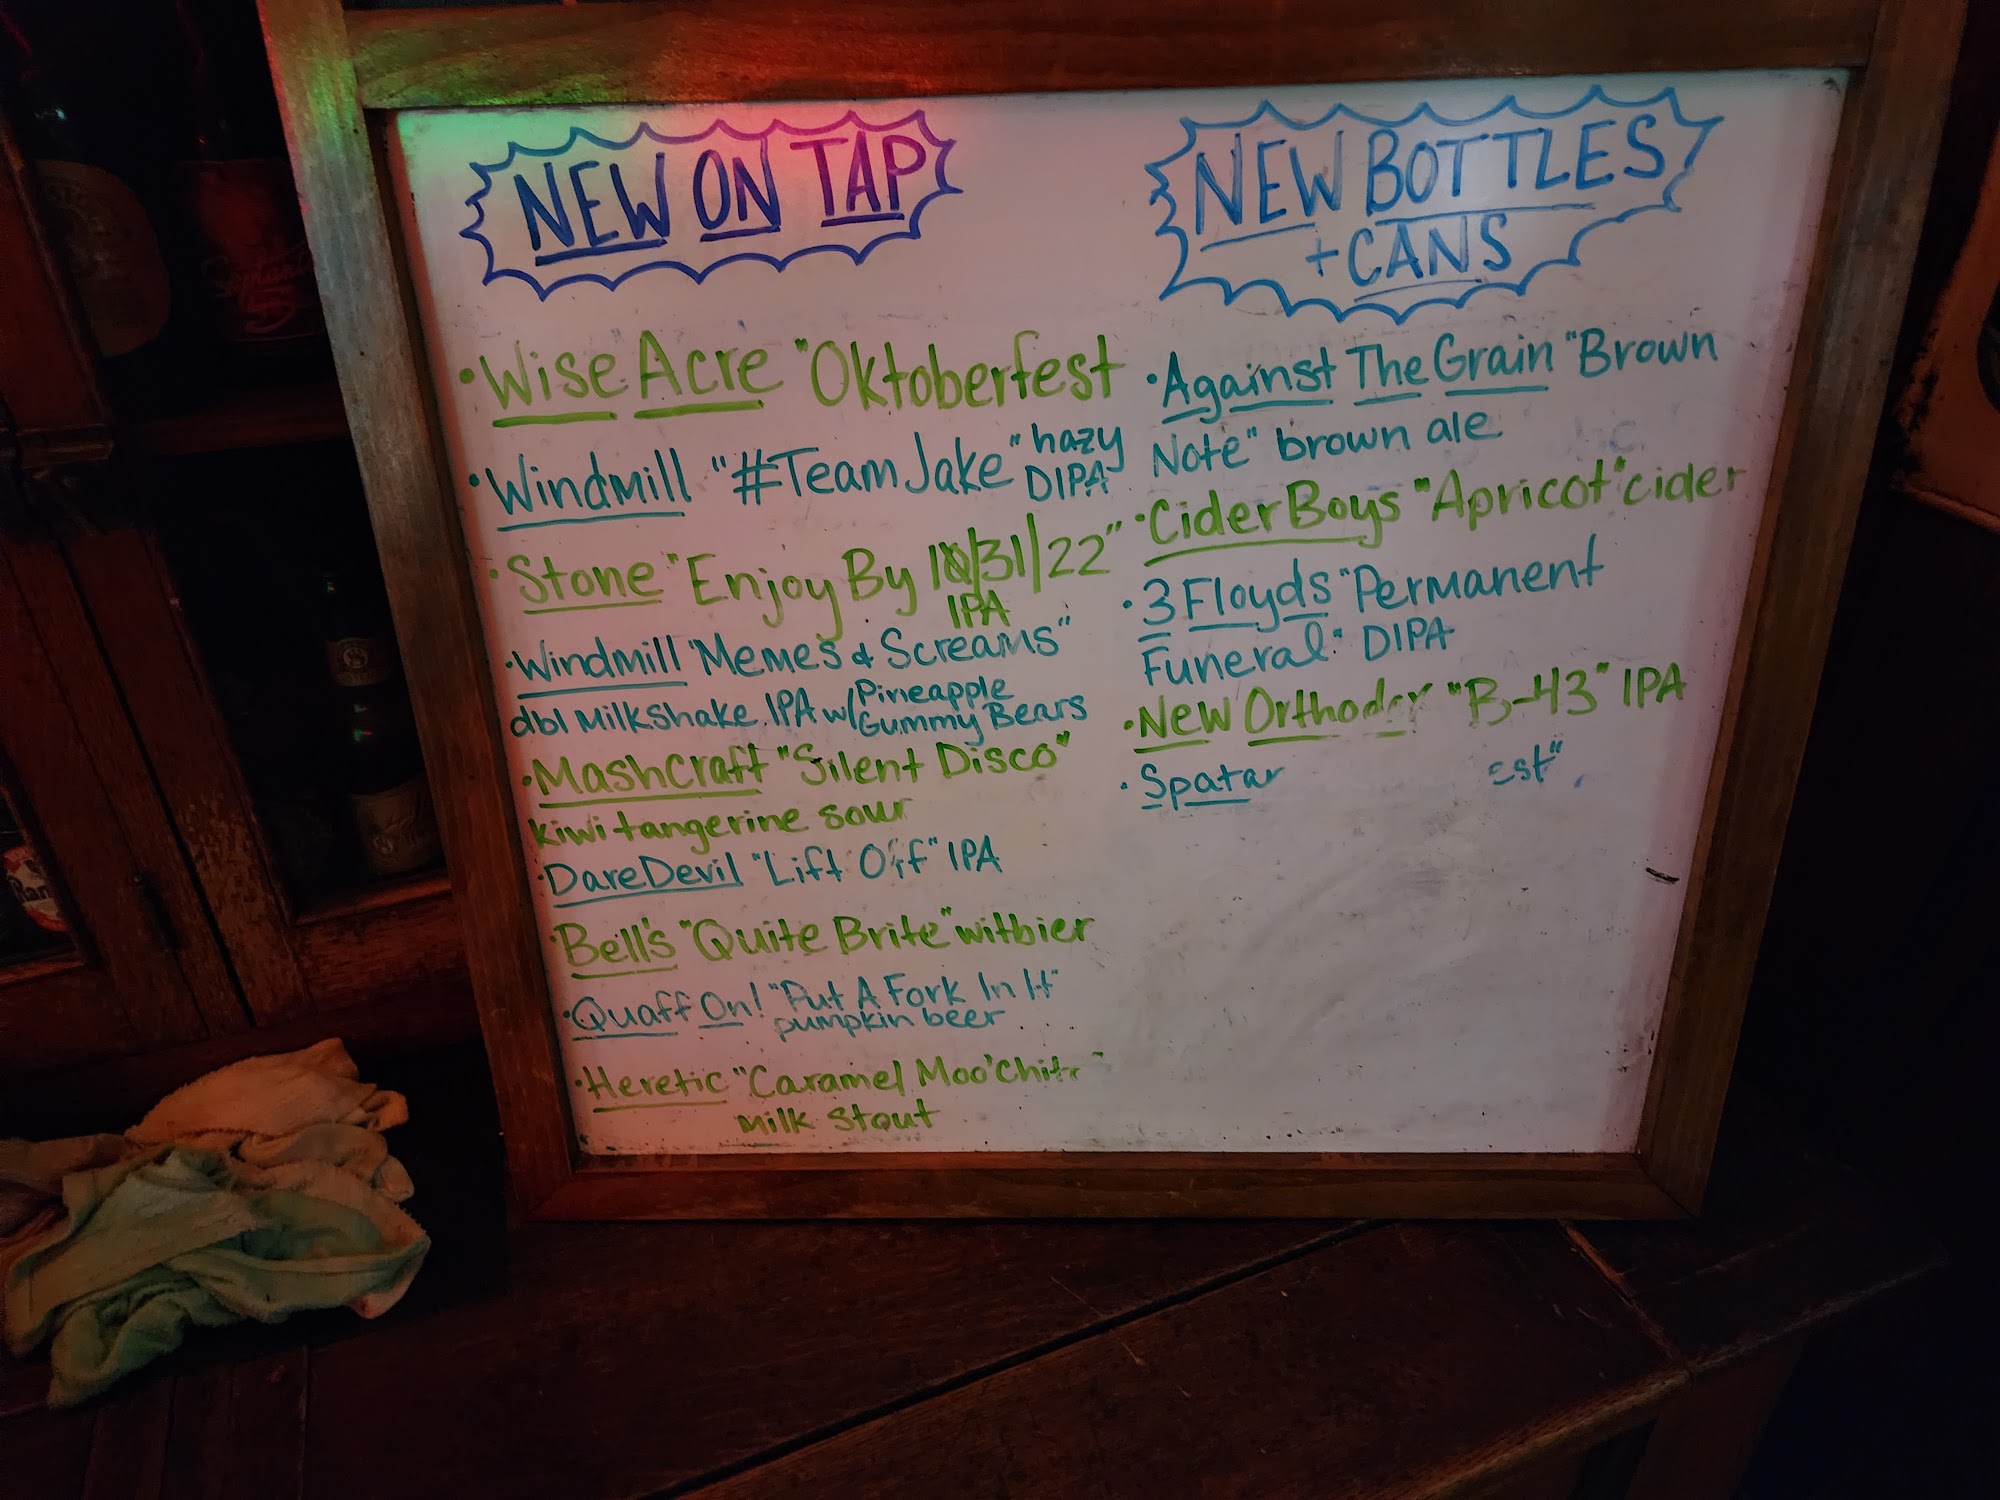 NEW ON TAP
• Wise Acre "Oktoberfest
• Windmill "#TeamJake" hazy
DIPA
• Stone "Enjoy By 10/31/22"
IPA
• Windmill "Memes & Screams"
dbl Milkshake IPA w/ Pineapple
Gummy Bears
• MashCraft "Silent Disco"
kiwi tangerine sour
• DareDevil "Lift Off" IPA
• Bell's "Quite Brite" witbier
• Quaff On! "Put A Fork In It"
pumpkin beer
• Heretic "Caramel Moo'Chit
milk stout
NEW BOTTLES
+ CANS
• Against The Grain "Brown
Note" brown ale
• CiderBoys "Apricot" cider
• 3 Floyds "Permanent
Funeral" DIPA
• New Orthodox "B-43" IPA
• Spatar est"